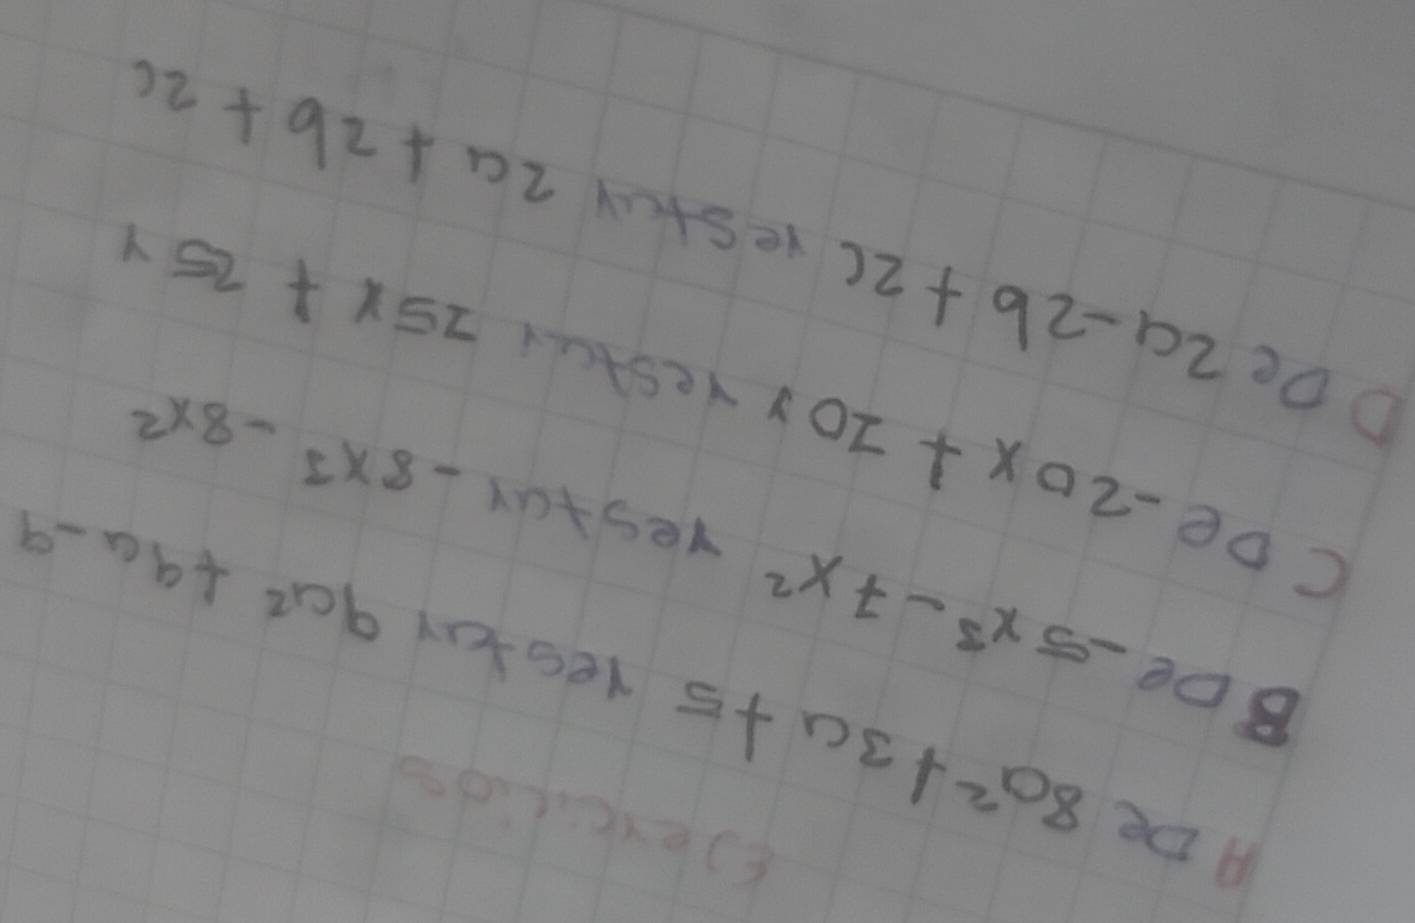 Ejercicios
A De 8a² + 3a + 5 restar 9a² + 9a - 9
B De -5x³ - 7x² restar -8x³ - 8x²
C De -20x + 20y restar 25x + 25y
D De 2a - 2b + 2c restar 2a + 2b + 2c